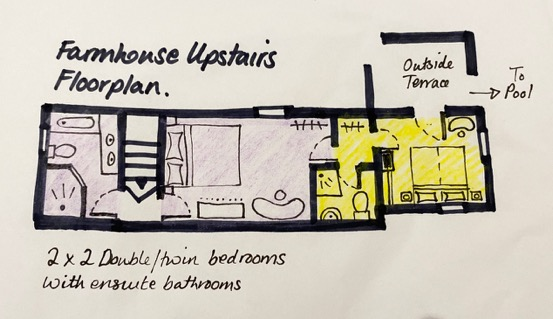 Farmhouse Upstairs
Floorplan.
Outside
Terrace
To
Pool
2 x 2 Double/twin bedrooms
with ensuite bathrooms